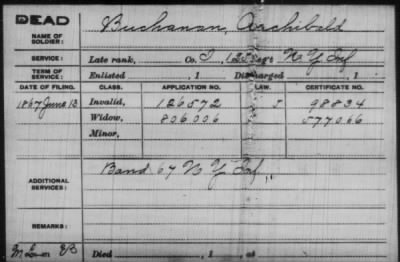 DEAD
NAME OF SOLDIER: Buchanan, Archibald
SERVICE: Late rank, Co. I, 125 Reg't N Y Inf
TERM OF SERVICE: Enlisted , 1 Discharged , 1
DATE OF FILING. CLASS. APPLICATION NO. LAW. CERTIFICATE NO.
1867 June 13 Invalid, 126572 98834
Widow, 806006 577066
Minor,
ADDITIONAL SERVICES: Band 67 N Y Inf
REMARKS:
Died , 1 , at